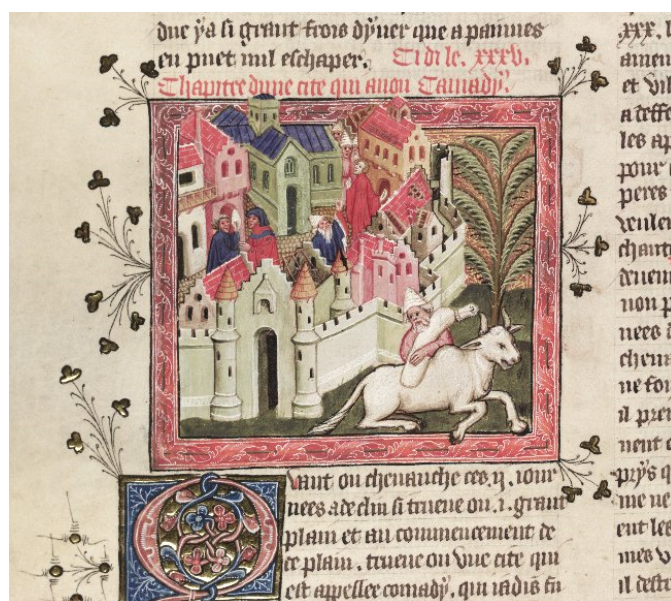 duc ya si grant frois dyuer que a paines
en puet nul eschaper. Ci di le .xxxv.
Chapitre dune cite qui a non Camady.
Quant on cheuauche ces .ij. iour
nees adeclin si trueue on .i. grant
plain et au commencement de
ce plain, trueue on vne cite qui
est appellee comady, qui iadis fu
.xxx. l
et vi
a dest
les ap
pour
veulen
non p
nees d
chem
ne foi
il pre
nent
prys q
me ne
ent les
mes v
il destr